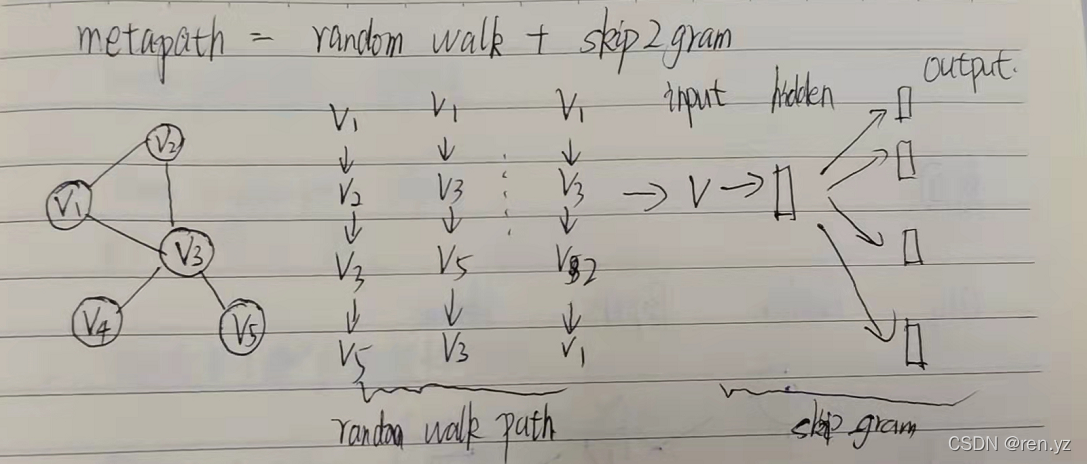 metapath = random walk + skip2gram
output.
V1 V1 V1 input hidden
V2
V1
V2 V3 V3 → V →
V3
V3 V5 V2
V4 V5
V5 V3 V1
random walk path
skip gram
CSDN @ren.yz